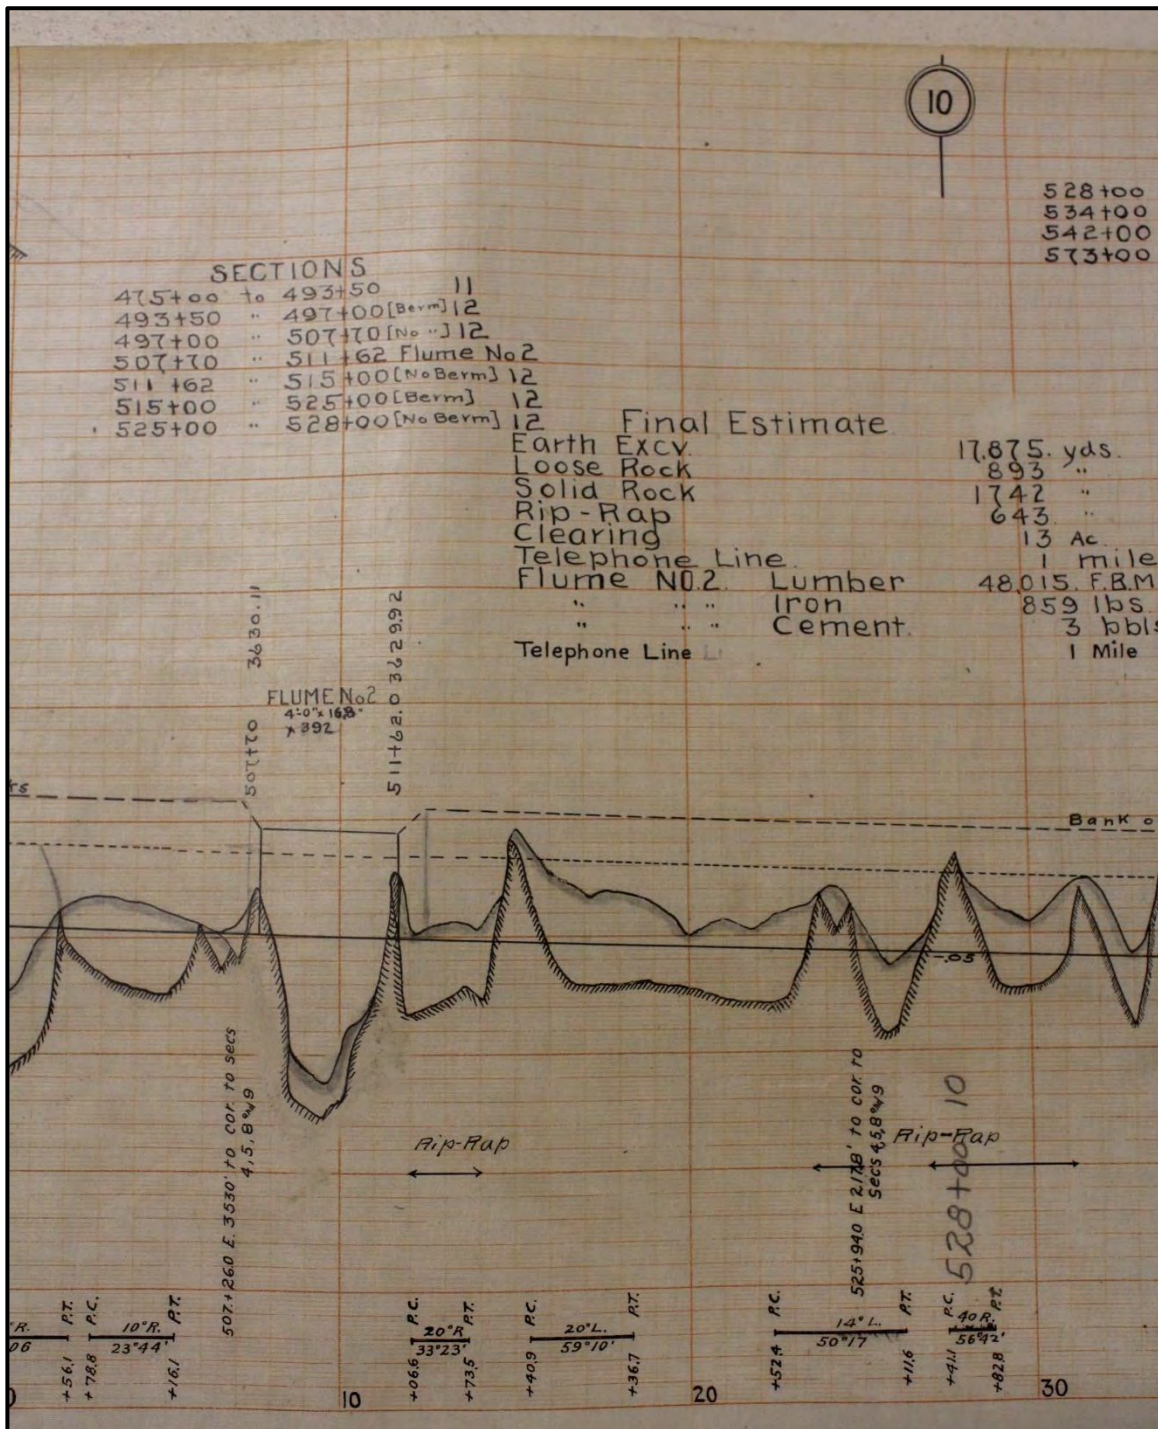 10
528+00
534+00
542+00
573+00
SECTIONS
475+00 to 493+50 11
493+50 " 497+00 [Berm] 12
497+00 " 507+70 [No "] 12
507+70 " 511+62 Flume No 2
511+62 " 515+00 [No Berm] 12
515+00 " 525+00 [Berm] 12
525+00 " 528+00 [No Berm] 12
Final Estimate
Earth Excv. 17,875. yds.
Loose Rock 893 "
Solid Rock 1742 "
Rip-Rap 643. "
Clearing 13 Ac.
Telephone Line. 1 mile
Flume NO.2. Lumber 48,015. F.B.M
" " " Iron 859 lbs.
" " " Cement. 3 bbls
Telephone Line 1 Mile
507+70 3630.11
FLUME No 2
4'-0" x 16'8"
x 392
511+62.0 3629.92
rs
Bank o
-.03
507+26.0 E. 3530' to cor. to secs
4, 5, 8 & 9
Rip-Rap
525+94.0 E 2178' to cor. to
Secs 4,5,8 & 9
Rip-Rap
528+00 10
°R.
06
+56.1 P.T.
+78.8 P.C.
10°R.
23°44'
+16.1 P.T.
+06.6 P.C.
20°R
33°23'
+73.5 P.T.
+40.9 P.C.
20°L.
59°10'
+36.7 P.T.
+52.4 P.C.
14°L.
50°17
+11.6 P.T.
+41.1 P.C.
40 R.
56°42'
+82.8 P.T.
0 10 20 30